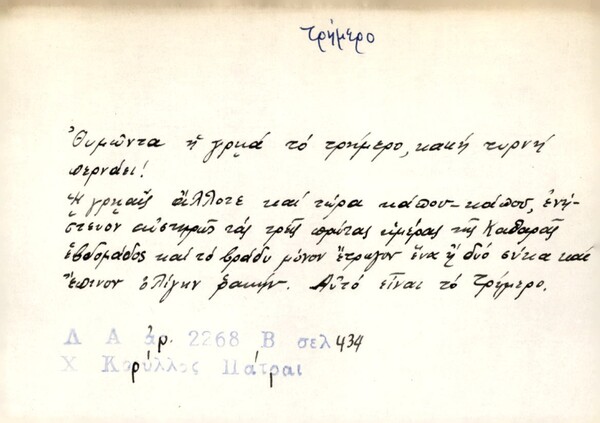 τρήμερο
Ἐθυμῶντα ἡ γρηά τὸ τρήμερο, κακή τυρνή
περνάει!
Ἡ γρηαῖς ἄλλοτε καί τώρα κάπου-κάπου, ἐνή-
στευον αὐστηρῶς τάς τρεῖς πρώτας ἡμέρας τῆς Καθαρᾶς
ἑβδομάδος καί τό βράδυ μόνον ἔτρωγον ἕνα ἤ δυό σύκα καί
ἔπινον ὀλίγην ρακήν. Αὐτό εἶναι τό Τρήμερο.
Λ Α ἀρ. 2268 Β σελ 434
Χ Κορύλλος Πάτραι